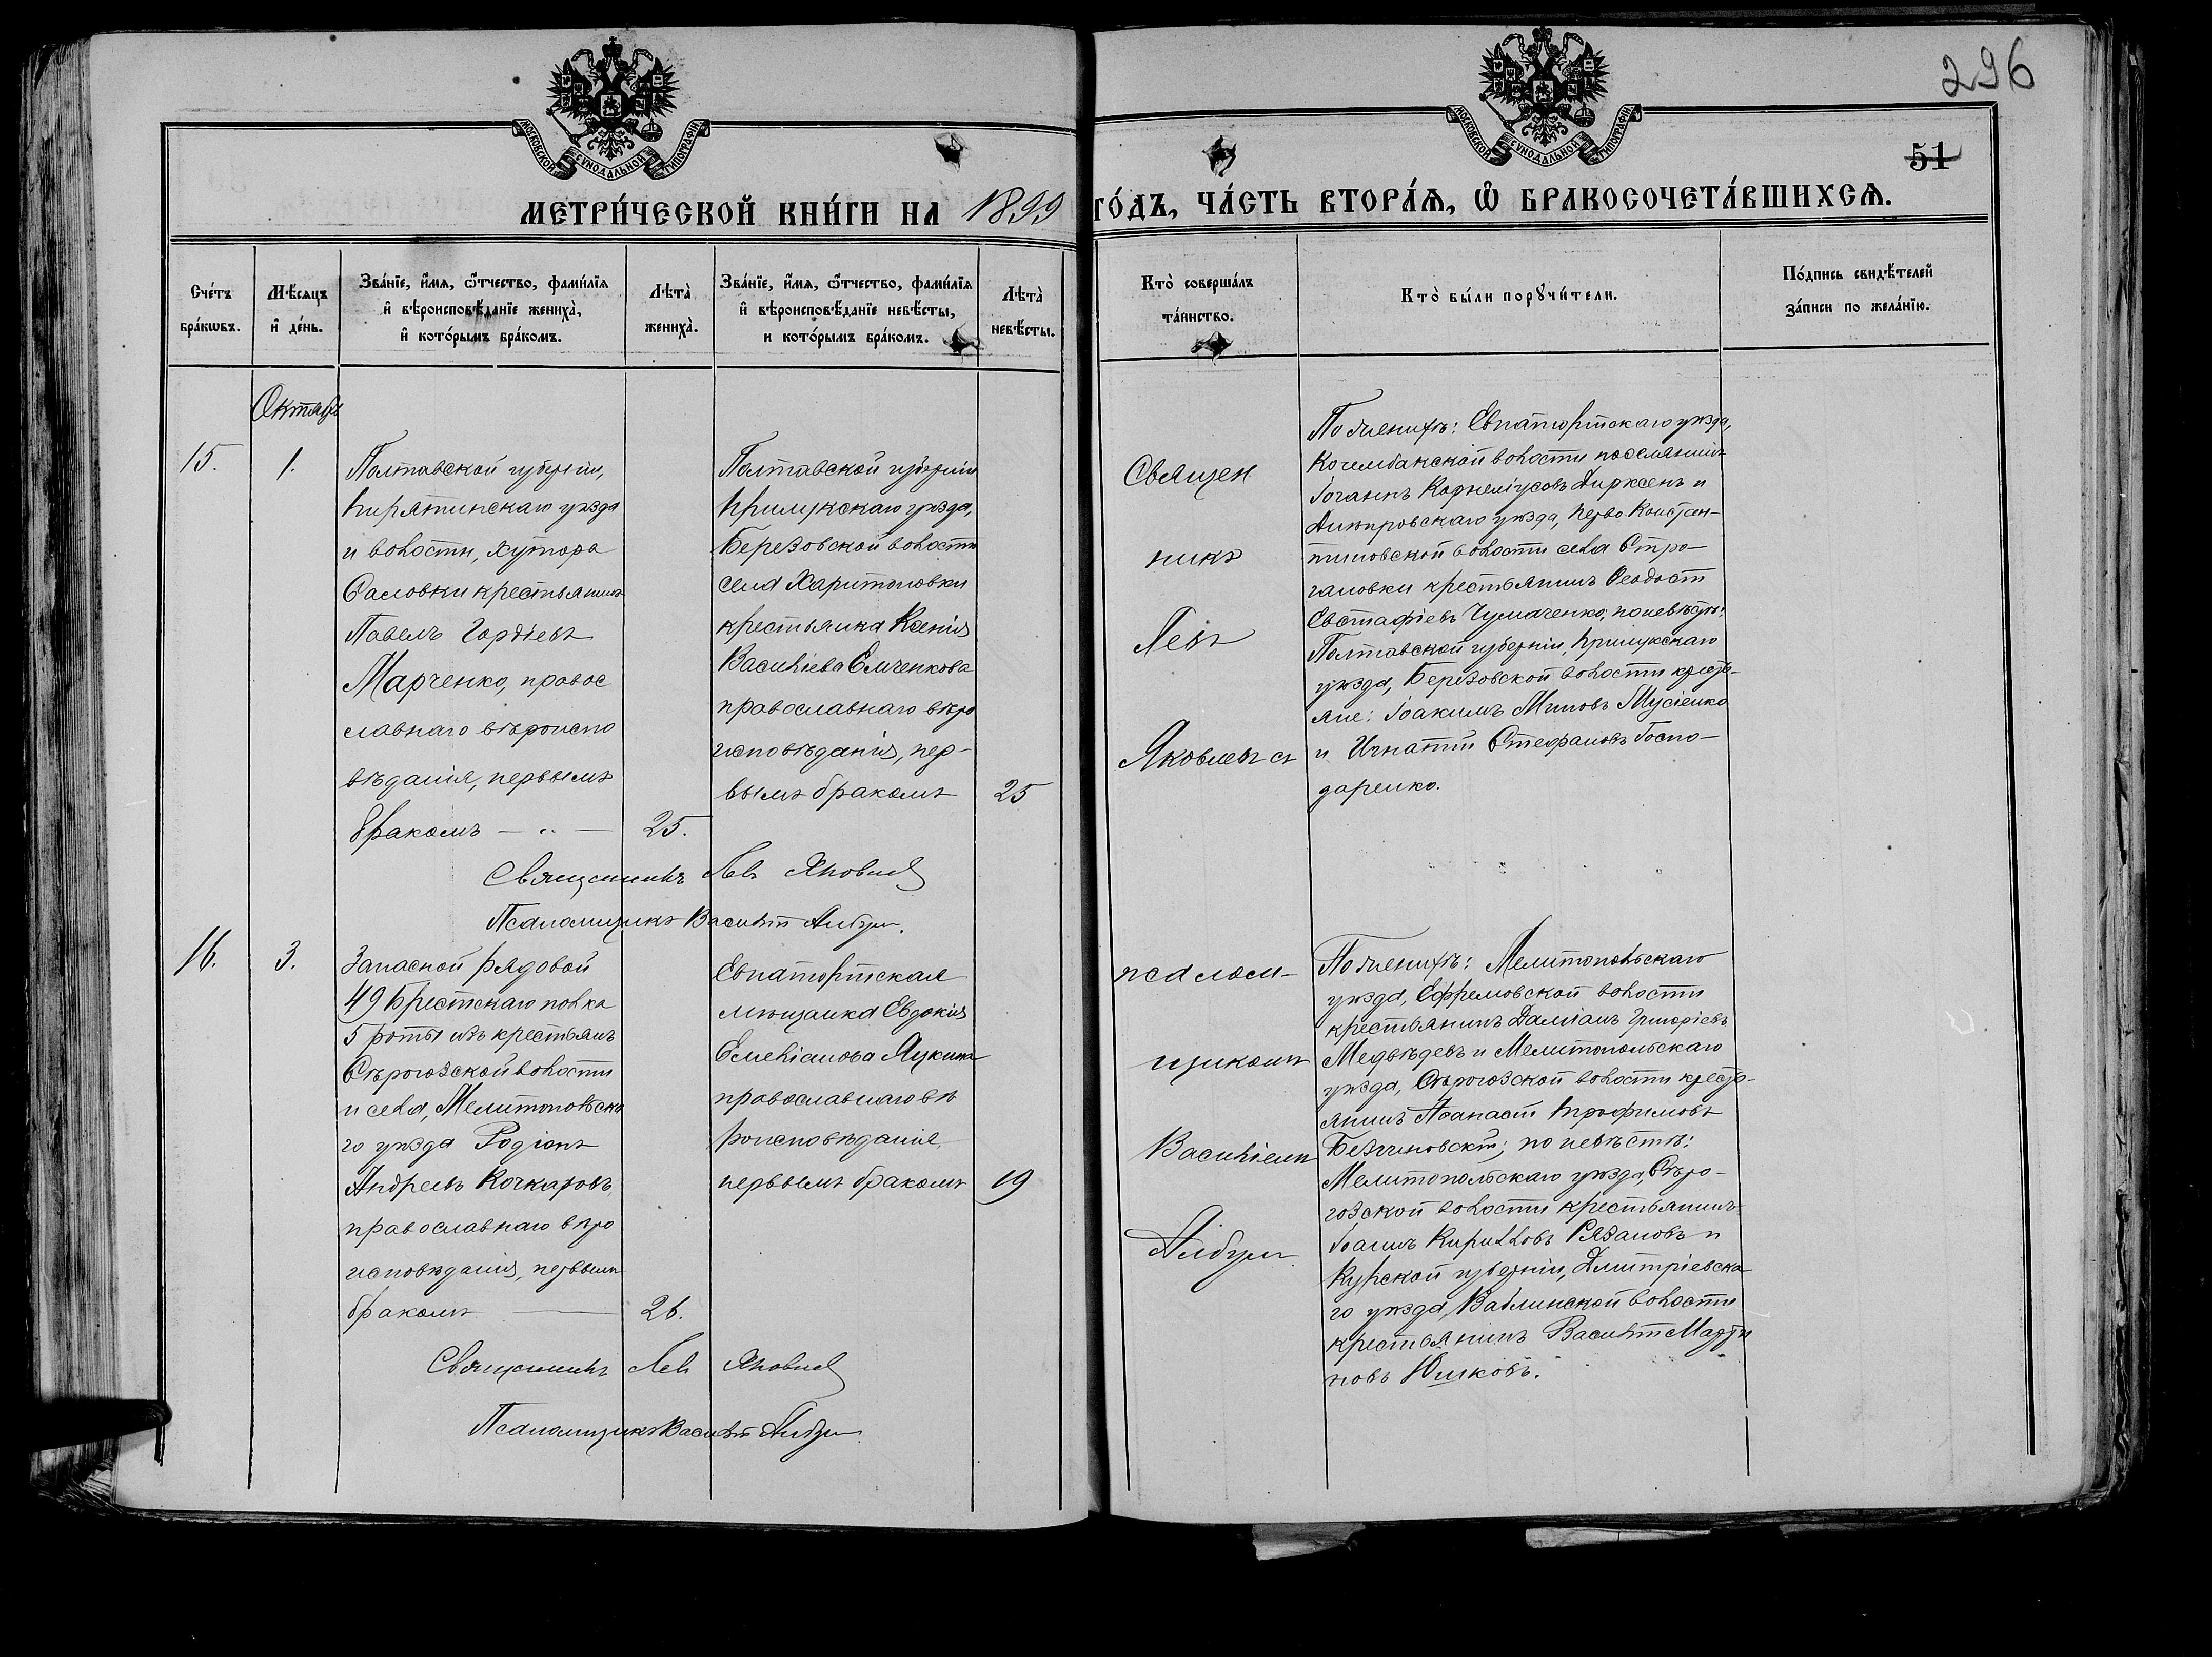 296
51
МОСКОВСКОЙ СѴНОДАЛЬНОЙ ТИПОГРАФІИ
МОСКОВСКОЙ СѴНОДАЛЬНОЙ ТИПОГРАФІИ
МЕТРИ́ЧЕСКОЙ КНИ́ГИ НА 1899 ГО́ДЪ, ЧА́СТЬ ВТОРА́Ѧ, Ѽ БРАКОСОЧЕТА́ВШИХСѦ.
Сче́тъ
бра́кѡвъ.
Мѣ́сяцъ
и҆ де́нь.
Зва́нїе, и҆́мя, ѻ҆́тчество, фами́лїя
и҆ вѣроисповѣ́данїе жениха̀,
и҆ кото́рымъ бра́комъ.
Лѣта̀
жениха̀.
Зва́нїе, и҆́мя, ѻ҆́тчество, фами́лїя
и҆ вѣроисповѣ́данїе невѣ́сты,
и кото́рымъ бра́комъ.
Лѣта̀
невѣ́сты.
Кто̀ соверша́лъ
та́инство.
Кто̀ бы́ли порꙋчи́тели.
По́дпись свидѣ́телей
за́писи по жела́нїю.
Октябр
15.
1.
Полтавской губерніи,
Пирятинскаго уѣзда
и волости, хутора
крестьянинъ
Павелъ Гордіевъ
Марченко, правос
славнаго вѣроиспо
вѣданія, первымъ
бракомъ — " —
25.
Полтавской губерніи
Прилукскаго уѣзда,
Березовской волости
села Харитоновки
крестьянка Ксенія
Василіева Емченкова
православнаго вѣро
исповѣданія, пер-
вымъ бракомъ
25
Священ
никъ
Левъ
Яковлевъ съ
По женихѣ: Евпаторійскаго уѣзда,
волости поселянинъ
Іоганнъ Корнеліусовъ Дирксенъ и
Днѣпровскаго уѣзда, Перво Констан-
тиновской волости села Стро-
гановки крестьянинъ Ѳеодосій
Евстафіевъ Чумаченко; по невѣстѣ:
Полтавской губерніи, Прилукскаго
уѣзда, Березовской волости кресть-
яне: Іоакимъ Миновъ Мусіенко
и Игнатій Стефановъ Госпо-
даренко.
Священникъ Левъ Яковлев
Псаломщикъ Василій
16.
3.
Запасной рядовой
49 Брестскаго полка
5 роты изъ крестьянъ
Сѣрогозской волости
и села, Мелитопольска
го уѣзда Родіонъ
Андреевъ Кочкаровъ,
православнаго вѣро
исповѣданія, первымъ
бракомъ —
26.
Евпаторійская
мѣщанка Евдокія
Емеліанова
православнаго вѣ
роисповѣданія,
первымъ бракомъ
19
псалом-
щикомъ
Василіемъ
По женихѣ: Мелитопольскаго
уѣзда, Ефремовской волости
крестьянинъ Даміанъ Григоріевъ
Медвѣдевъ и Мелитопольскаго
уѣзда, Сѣрогозской волости кресть-
янинъ Аѳанасій Трофимовъ
по невѣстѣ:
Мелитопольскаго уѣзда, Сѣро-
гозской волости крестьянинъ
Іоаннъ Кирилловъ Рязановъ и
Курской губерніи, Дмитріевска
го уѣзда, волости
крестьянинъ Василій Марти
новъ Юшковъ.
Священникъ Левъ Яковлев
Псаломщикъ Василій